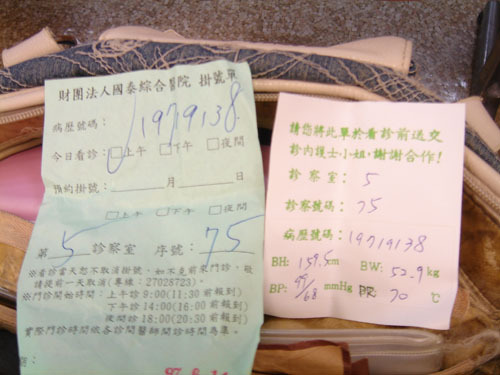 財團法人國泰綜合醫院 掛號單
病歷號碼：19719138
今日看診：☑上午 □下午 □夜間
預約掛號：____月____日
□上午 □下午 □夜間
第 5 診察室 序號：75
※看診當天您不取消掛號，如不克前來門診，敬
請提前一天取消（專線：27028723）。
※門診開始時間：上午診 9:00(11:30 前報到)
下午診 14:00(16:00 前報到)
夜間診 18:00(20:30 前報到)
實際門診時間依各診間醫師開診時間為準。
請您將此單於看診前送交
診內護士小姐，謝謝合作！
診察室：5
診察號碼：75
病歷號碼：19719138
BH: 159.5cm BW: 52.9kg
BP: 97/68 mmHg PR 70 ℃